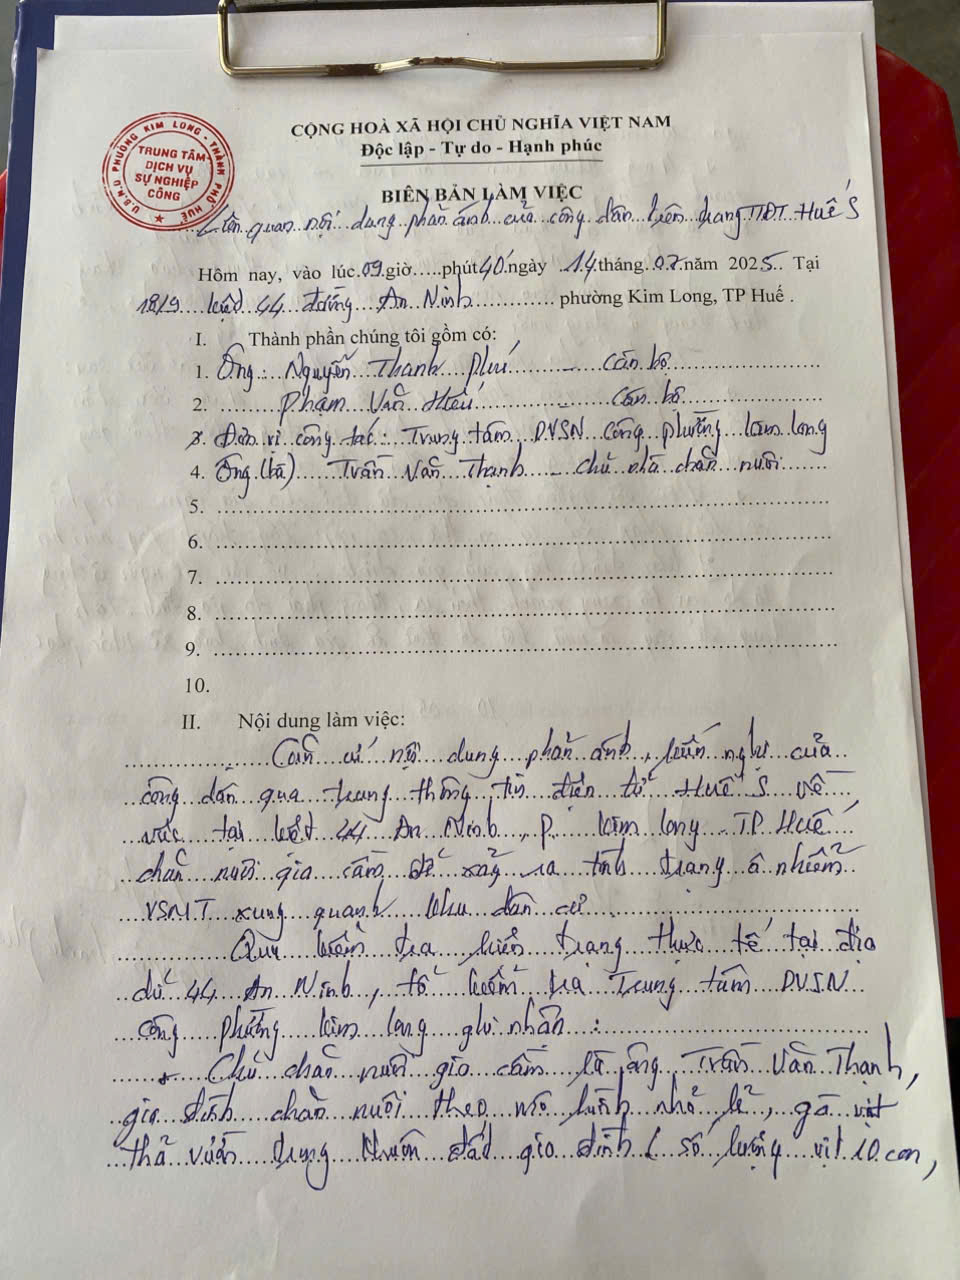 U.B.N.D PHƯỜNG KIM LONG - THÀNH PHỐ HUẾ
TRUNG TÂM
DỊCH VỤ
SỰ NGHIỆP
CÔNG
CỘNG HOÀ XÃ HỘI CHỦ NGHĨA VIỆT NAM
Độc lập - Tự do - Hạnh phúc
BIÊN BẢN LÀM VIỆC
Liên quan nội dung phản ánh của công dân trên trang TTĐT Huế S
Hôm nay, vào lúc 09 giờ.....phút 40 ngày 14 tháng 07 năm 2025. Tại
18/9 kiệt 44 đường An Ninh phường Kim Long, TP Huế .
I. Thành phần chúng tôi gồm có:
1. Ông: Nguyễn Thanh Phú - Cán bộ
2. Phạm Văn Hiếu - Cán bộ
3. Đơn vị công tác: Trung tâm DVSN công phường Kim Long
4. Ông (bà) Trần Văn Thạnh - Chủ nhà chăn nuôi
5.
6.
7.
8.
9.
10.
II. Nội dung làm việc:
Căn cứ nội dung phản ánh, kiến nghị của
công dân qua trang thông tin điện tử Huế S về
việc tại kiệt 44 An Ninh, P. Kim Long TP Huế
chăn nuôi gia cầm để xảy ra tình trạng ô nhiễm
VSMT xung quanh khu dân cư
Qua kiểm tra hiện trạng thực tế tại địa
chỉ 44 An Ninh, tổ kiểm tra Trung tâm DVSN
công phường Kim Long ghi nhận:
+ Chủ chăn nuôi gia cầm là ông Trần Văn Thạnh,
gia đình chăn nuôi theo mô hình nhỏ lẻ, gà vịt
thả vườn trong khuôn đất gia đình ( số lượng vịt 10 con,